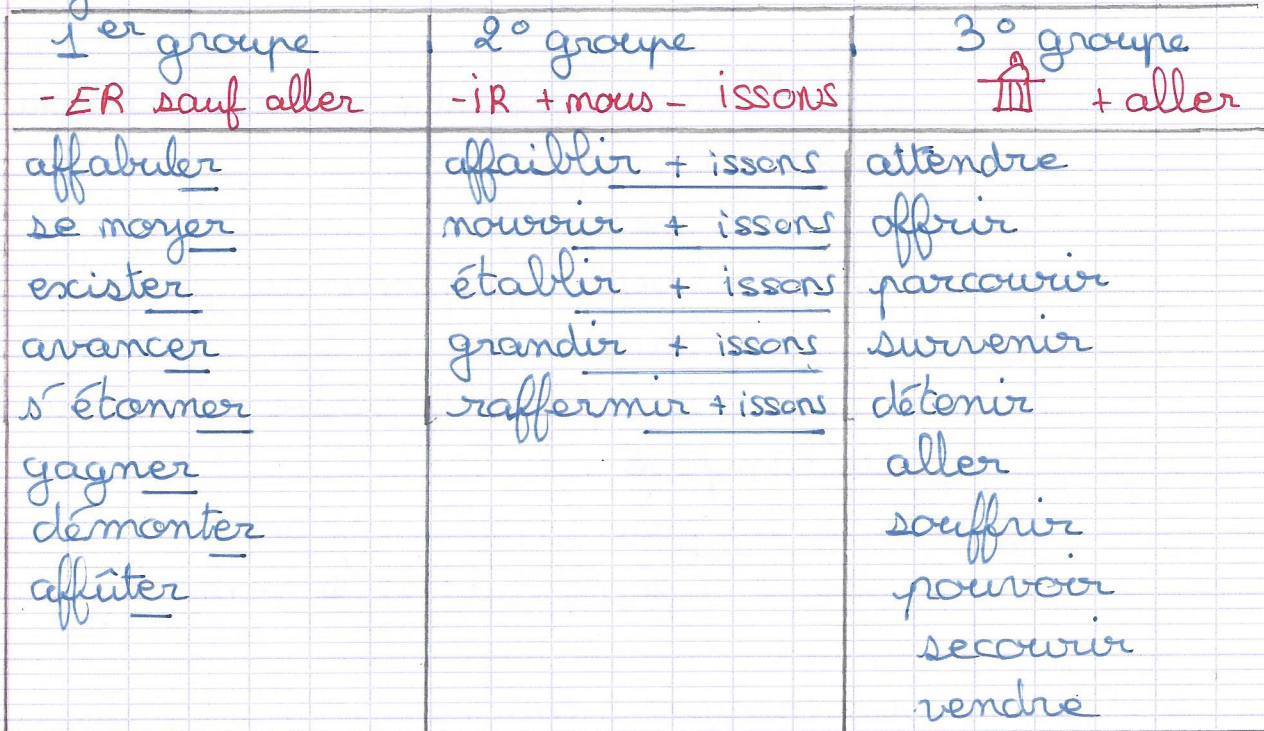 1er groupe
2° groupe
3° groupe
-ER sauf aller
-iR + nous - issons
+ aller
affabuler
affaiblir + issons
attendre
se noyer
nourrir + issons
offrir
exister
établir + issons
parcourir
avancer
grandir + issons
survenir
s'étonner
raffermir + issons
détenir
gagner
aller
démonter
souffrir
affûter
pouvoir
secourir
vendre